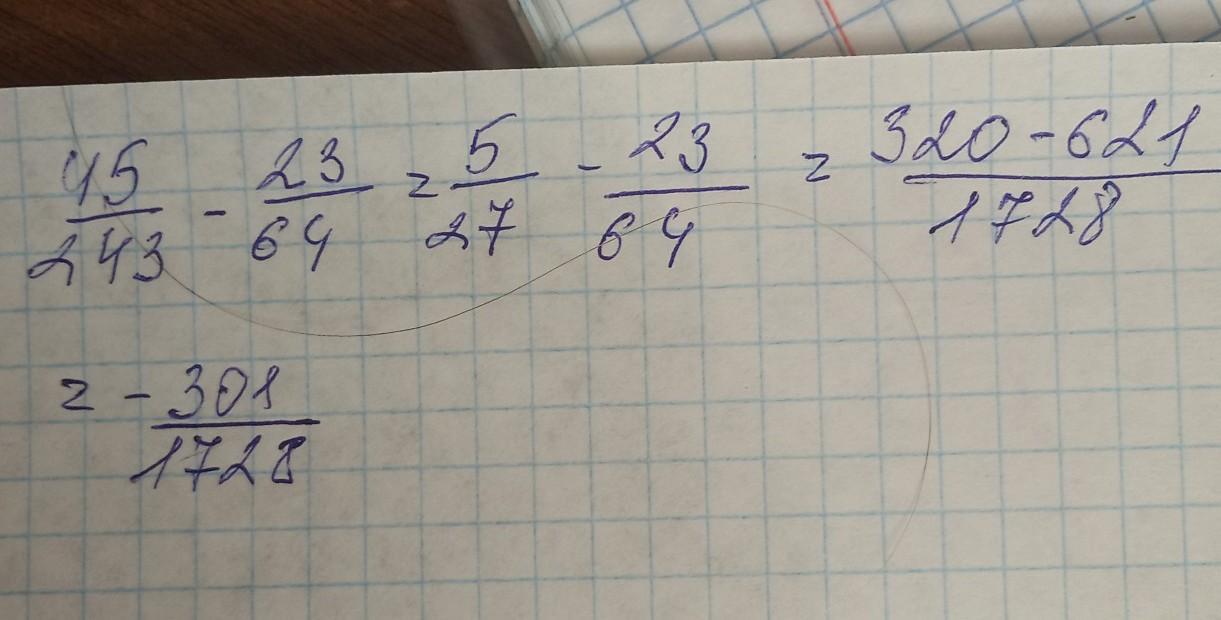 45/243 - 23/64 = 5/27 - 23/64 = (320-621)/1728
= -301/1728